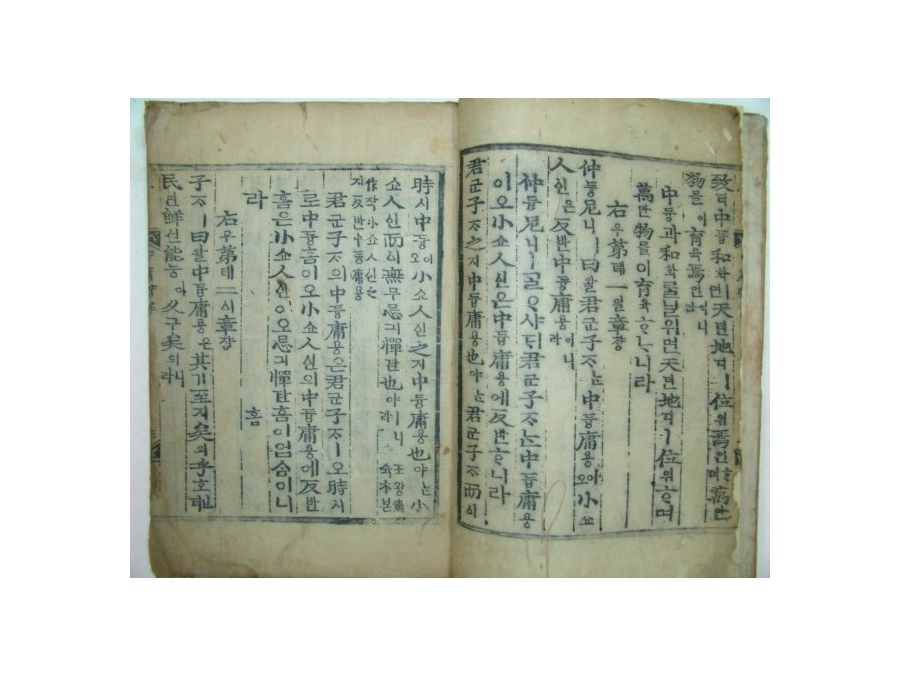 致티中듕和화ㅣ면天텬地디ㅣ位위焉언ᄒᆞ며萬만
物믈이育육焉언이니라
中듕과和화ᄅᆞᆯ닐위면天텬地디ㅣ位위ᄒᆞ며
萬만物믈이育육ᄒᆞᄂᆞ니라
右우第뎨一일章쟝
仲듕尼니ㅣ曰왈君군子ᄌᆞᄂᆞᆫ中듕庸용이오小쇼
人인은反반中듕庸용이니라
仲듕尼니ㅣᄀᆞᆯᄋᆞ샤ᄃᆡ君군子ᄌᆞᄂᆞᆫ中듕庸용
이오小쇼人인은中듕庸용에反반ᄒᆞᄂᆞ니라
君군子ᄌᆞ之지中듕庸용也야ᄂᆞᆫ君군子ᄌᆞ而시
時시中듕이오小쇼人인之지中듕庸용也야ᄂᆞᆫ小
쇼人인而시無무忌긔憚탄也야ㅣ니라 王왕肅슉本본
作작小쇼人인之지反반中듕庸용
君군子ᄌᆞ의中듕庸용은君군子ᄌᆞㅣ오時시
로中듕홈이오小쇼人인의中듕庸용에反반
홈은小쇼人인이오忌긔憚탄홈이업ᄉᆞᆷ이니
라
右우第뎨二ᅀᅵ章쟝
子ᄌᆞㅣ曰왈中듕庸용은其기至지矣의乎호뎌
民민鮮션能능이久구矣의니라